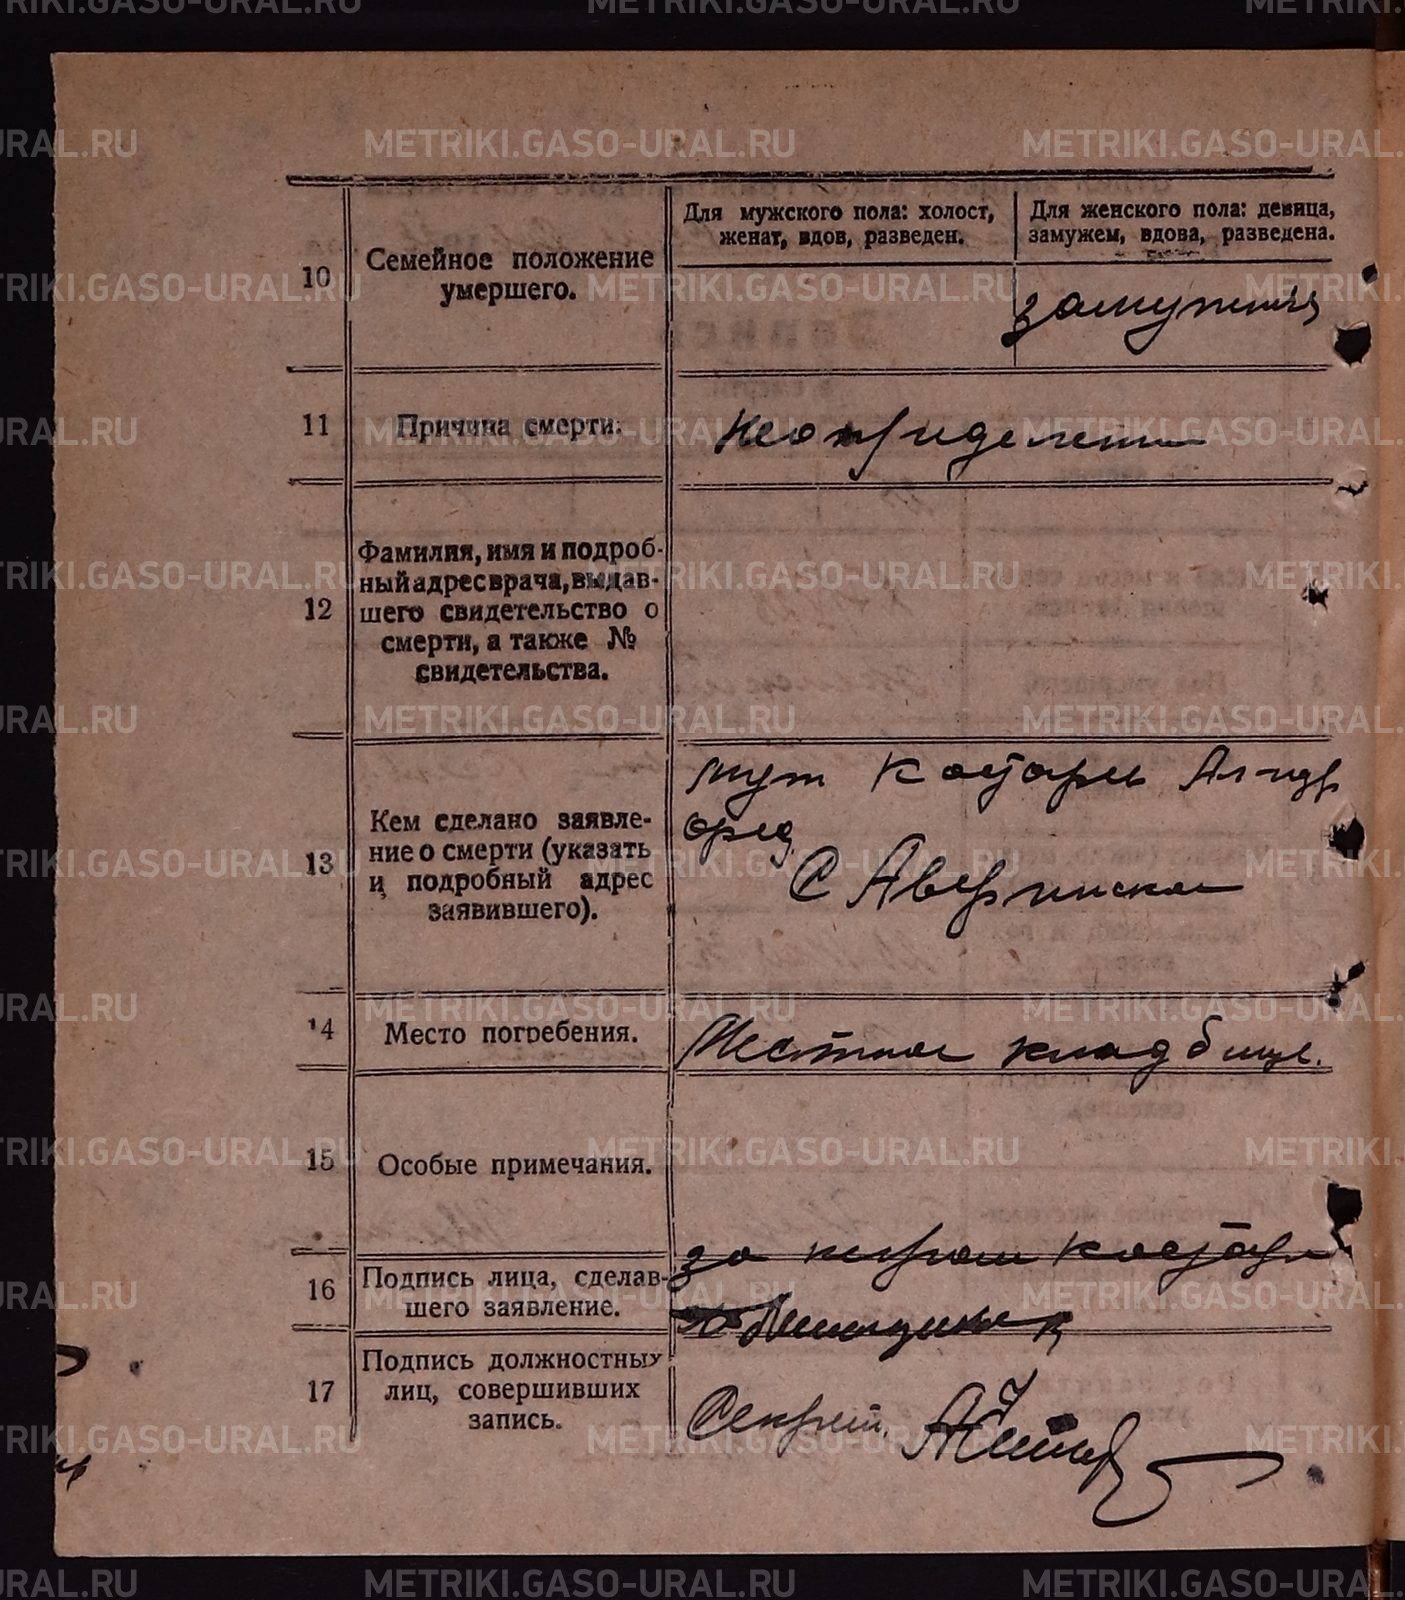 Для мужского пола: холост,
женат, вдов, разведен.
Для женского пола: девица,
замужем, вдова, разведена.
10
Семейное положение
умершего.
замужняя
11
Причина смерти:
12
Фамилия, имя и подроб-
ный адрес врача, выдав-
шего свидетельство о
смерти, а также №
свидетельства.
13
Кем сделано заявле-
ние о смерти (указать
и подробный адрес
заявившего).
муж
С Аверинское
14
Место погребения.
Местное кладбище.
15
Особые примечания.
16
Подпись лица, сделав-
шего заявление.
за
17
Подпись должностных
лиц, совершивших
запись.
Секрет.
METRIKI.GASO-URAL.RU